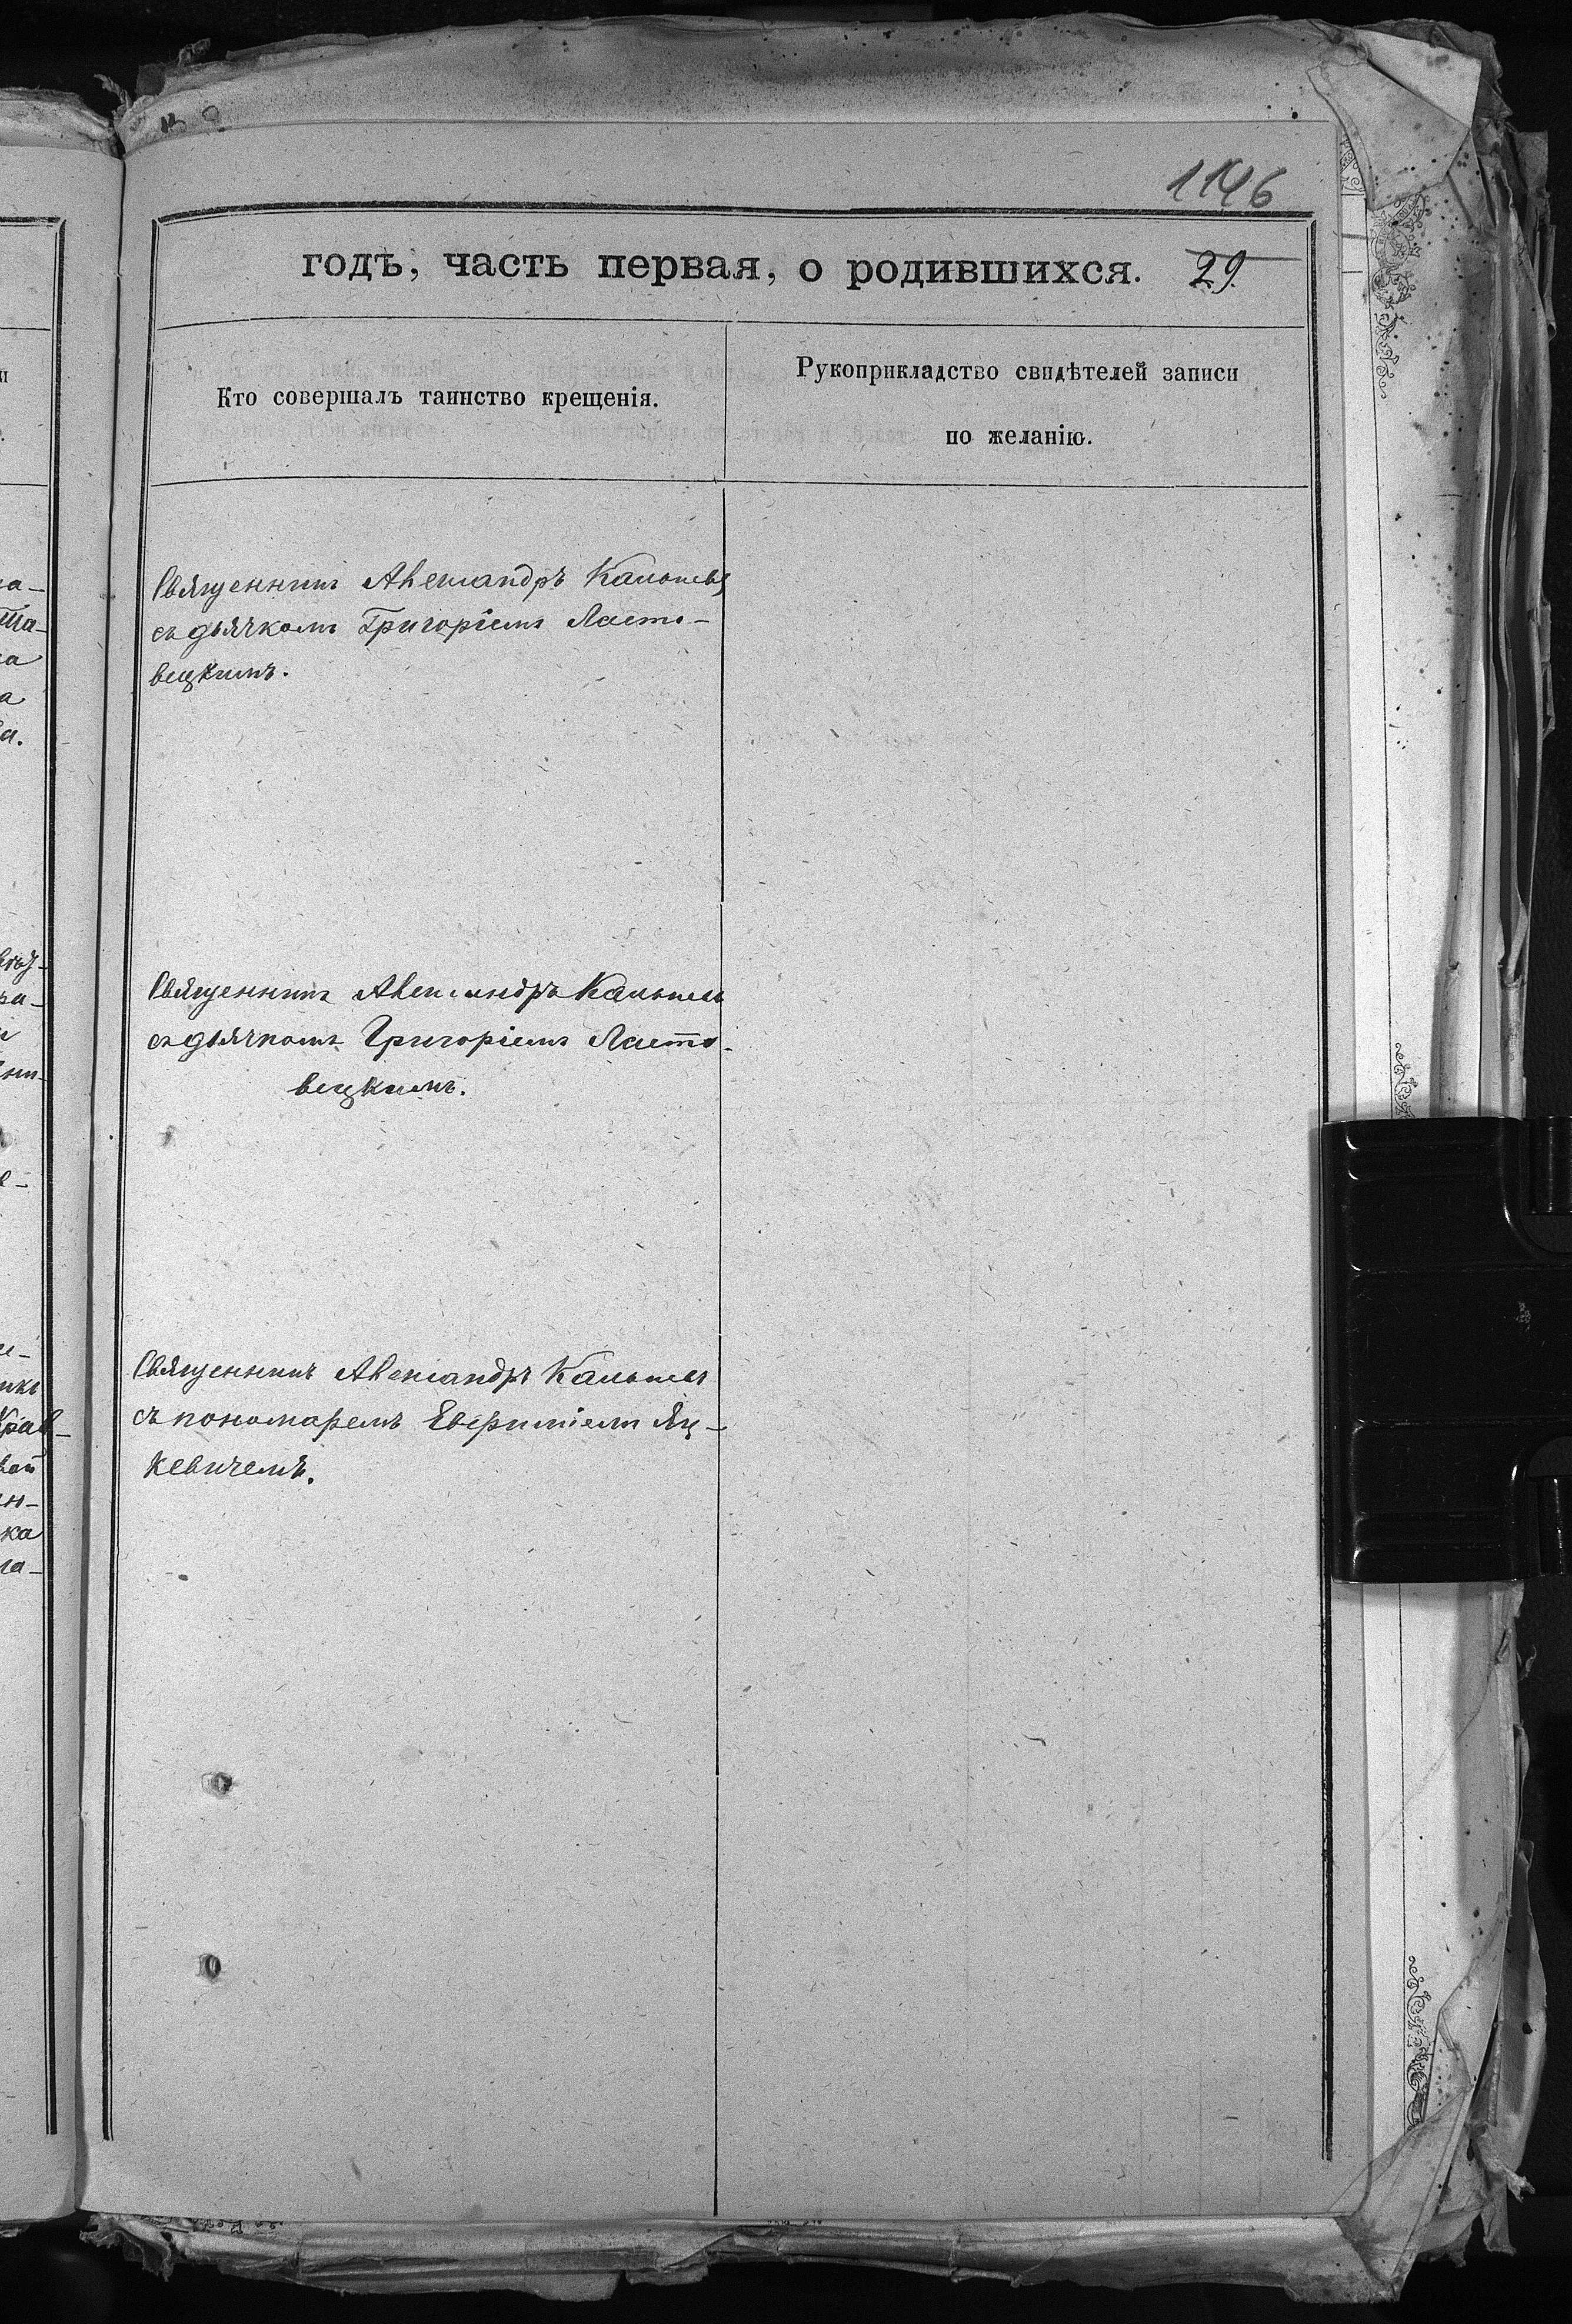 1146
годъ, часть первая, о родившихся. 29.
Кто совершалъ таинство крещенія.
Рукоприкладство свидѣтелей записи
по желанію.
Священникъ Александръ
съ дьячкомъ Григоріемъ Ласто-
вецкимъ.
Священникъ Александръ
съ дьячкомъ Григоріемъ Ласто-
вецкимъ.
Священникъ Александръ
съ пономаремъ Яц-
кевичемъ.